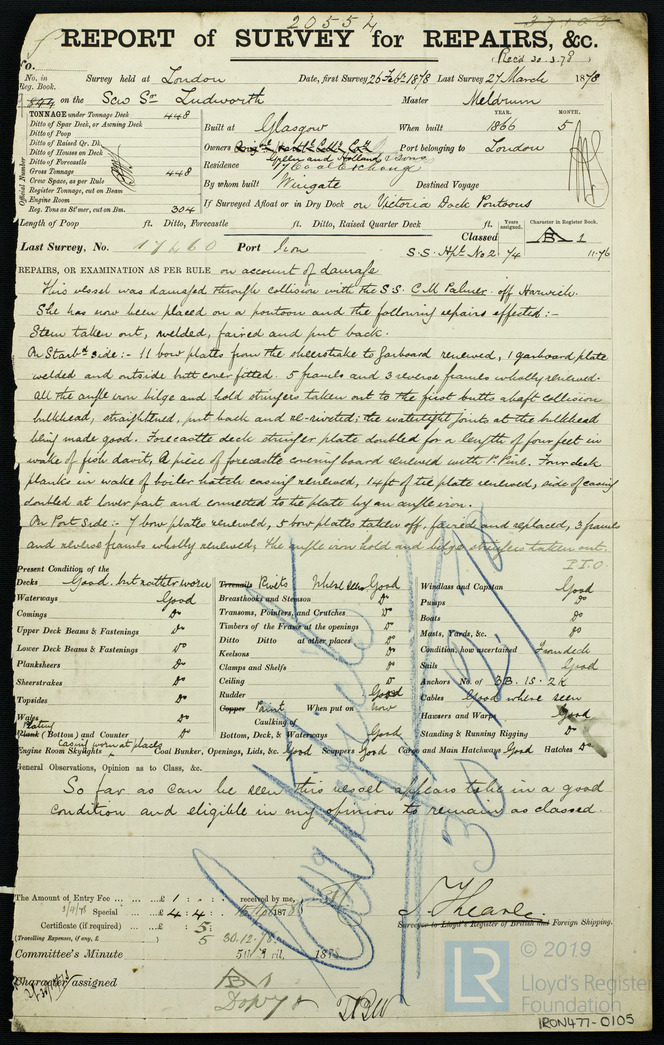 20554
REPORT of SURVEY for REPAIRS, &c.
(Recd 30.3.78)
No. in Reg. Book. Survey held at London Date, first Survey 26 Feby 1878 Last Survey 27 March 1878
on the Scw Sr Ludworth Master Meldrum
TONNAGE under Tonnage Deck 448
Ditto of Spar Deck, or Awning Deck
Ditto of Poop
Ditto of Raised Qr. Dk.
Ditto of Houses on Deck
Ditto of Forecastle
Gross Tonnage 448
Crew Space, as per Rule
Register Tonnage, cut on Beam
Engine Room
Reg. Tons as St'mer, cut on Bm. 304
Official Number
YEAR. MONTH.
Built at Glasgow When built 1866 5
Owners Green and Holland & Sons Port belonging to London
Residence Coal Exchange
By whom built Wingate Destined Voyage
If Surveyed Afloat or in Dry Dock on Victoria Dock Pontoons
Length of Poop ft. Ditto, Forecastle ft. Ditto, Raised Quarter Deck ft.
Years assigned. Character in Register Book.
Classed A B 1
Last Survey, No. 17260 Port Iron S.S. Hpl No 2 74 11-76
REPAIRS, OR EXAMINATION AS PER RULE, on account of damage
This vessel was damaged through collision with the S.S. C M Palmer off Harwich.
She has now been placed on a pontoon and the following repairs effected:-
Stem taken out, welded, faired and put back.
On Starbd side:- 11 bow plates from the sheerstrake to garboard renewed, 1 garboard plate
welded and outside butt cover fitted. 5 frames and 3 reverse frames wholly renewed.
All the angle iron bilge and hold stringers taken out to the first butts abaft collision
bulkhead, straightened, put back and re-riveted; the watertight joints at the bulkhead
being made good. Forecastle deck stringer plate doubled for a length of four feet in
wake of fish davit, A piece of forecastle covering board renewed with P. Pine. Four deck
planks in wake of boiler hatch casing renewed, 14ft of tie plate renewed, side of casing
doubled at lower part and connected to tie plate by an angle iron.
On Port Side:- 7 bow plates renewed, 5 bow plates taken off, faired and replaced, 3 frames
and reverse frames wholly renewed, the angle iron hold and bilge stringers taken out.
P.T.O.
Present Condition of the
Decks Good. but rather worn
Waterways Good
Comings Do
Upper Deck Beams & Fastenings Do
Lower Deck Beams & Fastenings Do
Planksheers Do
Sheerstrakes Do
Topsides Do
Wales Do
Plating Plank (Bottom) and Counter Do
casing worn at places
Treenails Rivets Where seen Good
Breasthooks and Stemson Do
Transoms, Pointers, and Crutches Do
Timbers of the Frame at the openings Do
Ditto Ditto at other places Do
Keelsons Do
Clamps and Shelfs Do
Ceiling Do
Rudder Good
Copper Paint When put on now
Caulking of
Bottom, Deck, & Waterways Good
Windlass and Capstan Good
Pumps Do
Boats Do
Masts, Yards, &c. Do
Condition, how ascertained From deck
Sails Good
Anchors No. of 3B. 1S. 2K
Cables Good where seen
Hawsers and Warps Good
Standing & Running Rigging Do
Engine Room Skylights Coal Bunker, Openings, Lids, &c. Good Scuppers Good Cargo and Main Hatchways Good Hatches Do
General Observations, Opinion as to Class, &c.
So far as can be seen this vessel appears to be in a good
condition and eligible in my opinion to remain as classed.
Certificate
30.12.78
The Amount of Entry Fee £ 1 : : received by me,
Special £ 4 : 4 : 187
Certificate (if required) : 5 :
(Travelling Expenses, if any, £ ) 5 30.12.78
Committee's Minute 5th April, 1878
Character assigned A B 1
T. Hearle.
Surveyor to Lloyd's Register of British and Foreign Shipping.
LR
© 2019
Lloyd's Register
Foundation
IRON477-0105